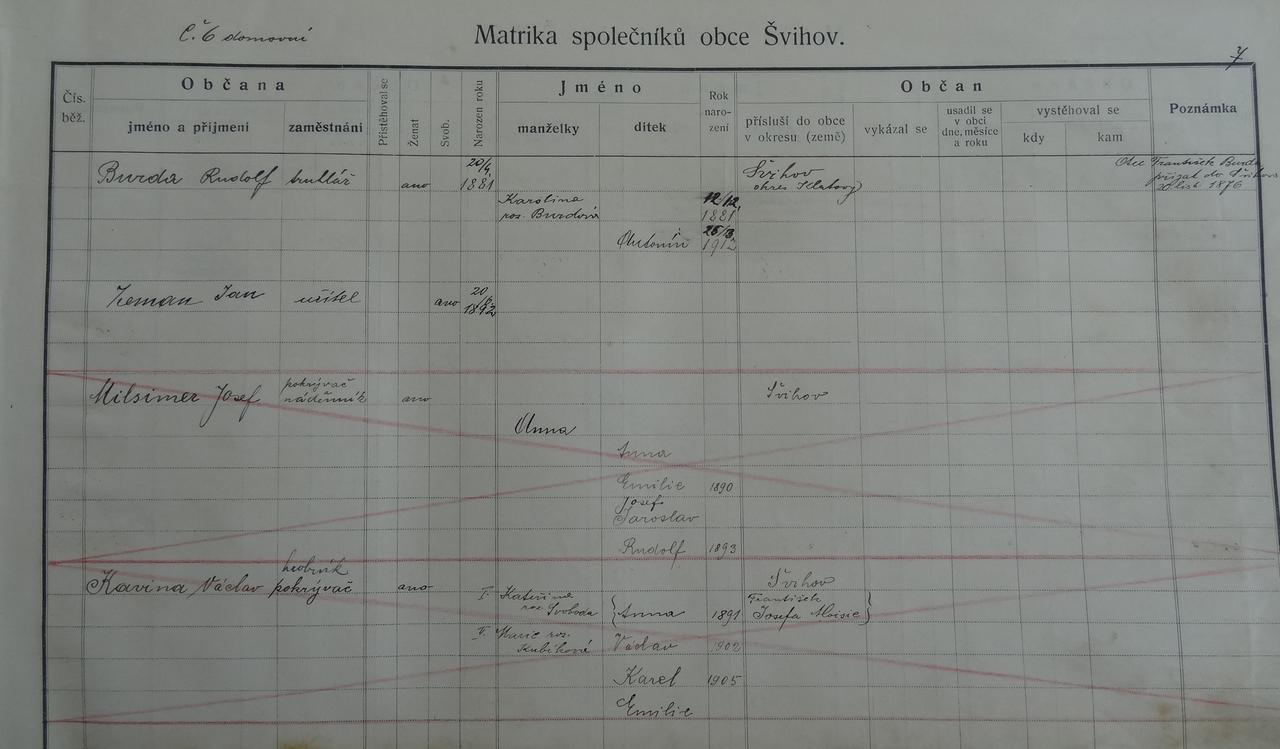 Č. 6 domovní
Matrika společníků obce Švihov.
7
Čís. běž.
Občana
jméno a příjmení
zaměstnání
Přistěhoval se
Ženat
Svob.
Narozen roku
Jméno
manželky
dítek
Rok naro- zení
Občan
přísluší do obce v okresu (země)
vykázal se
usadil se v obci dne, měsíce a roku
vystěhoval se
kdy
kam
Poznámka
Burda Rudolf truhlář ano 20/4. 1881 Švihov
okres Klatovy
Otec František Burda
přijat do Švihova
20 list. 1876
Karolina
roz. Burdová
12/12. 1881
Antonín 25/3. 1912
Zeman Jan učitel ano 20/6. 1892
Milsimer Josef pokrývač
nádenník ano Švihov
Anna
Anna
Emilie 1890
Josef
Jaroslav
Rudolf 1893
Kavina Václav hrobník
pokrývač ano Švihov
I. Kateřina
roz. Svoboda
Anna 1891 František
Josefa Aloisie
II. Marie roz.
Kubíková
Václav 1902
Karel 1905
Emilie